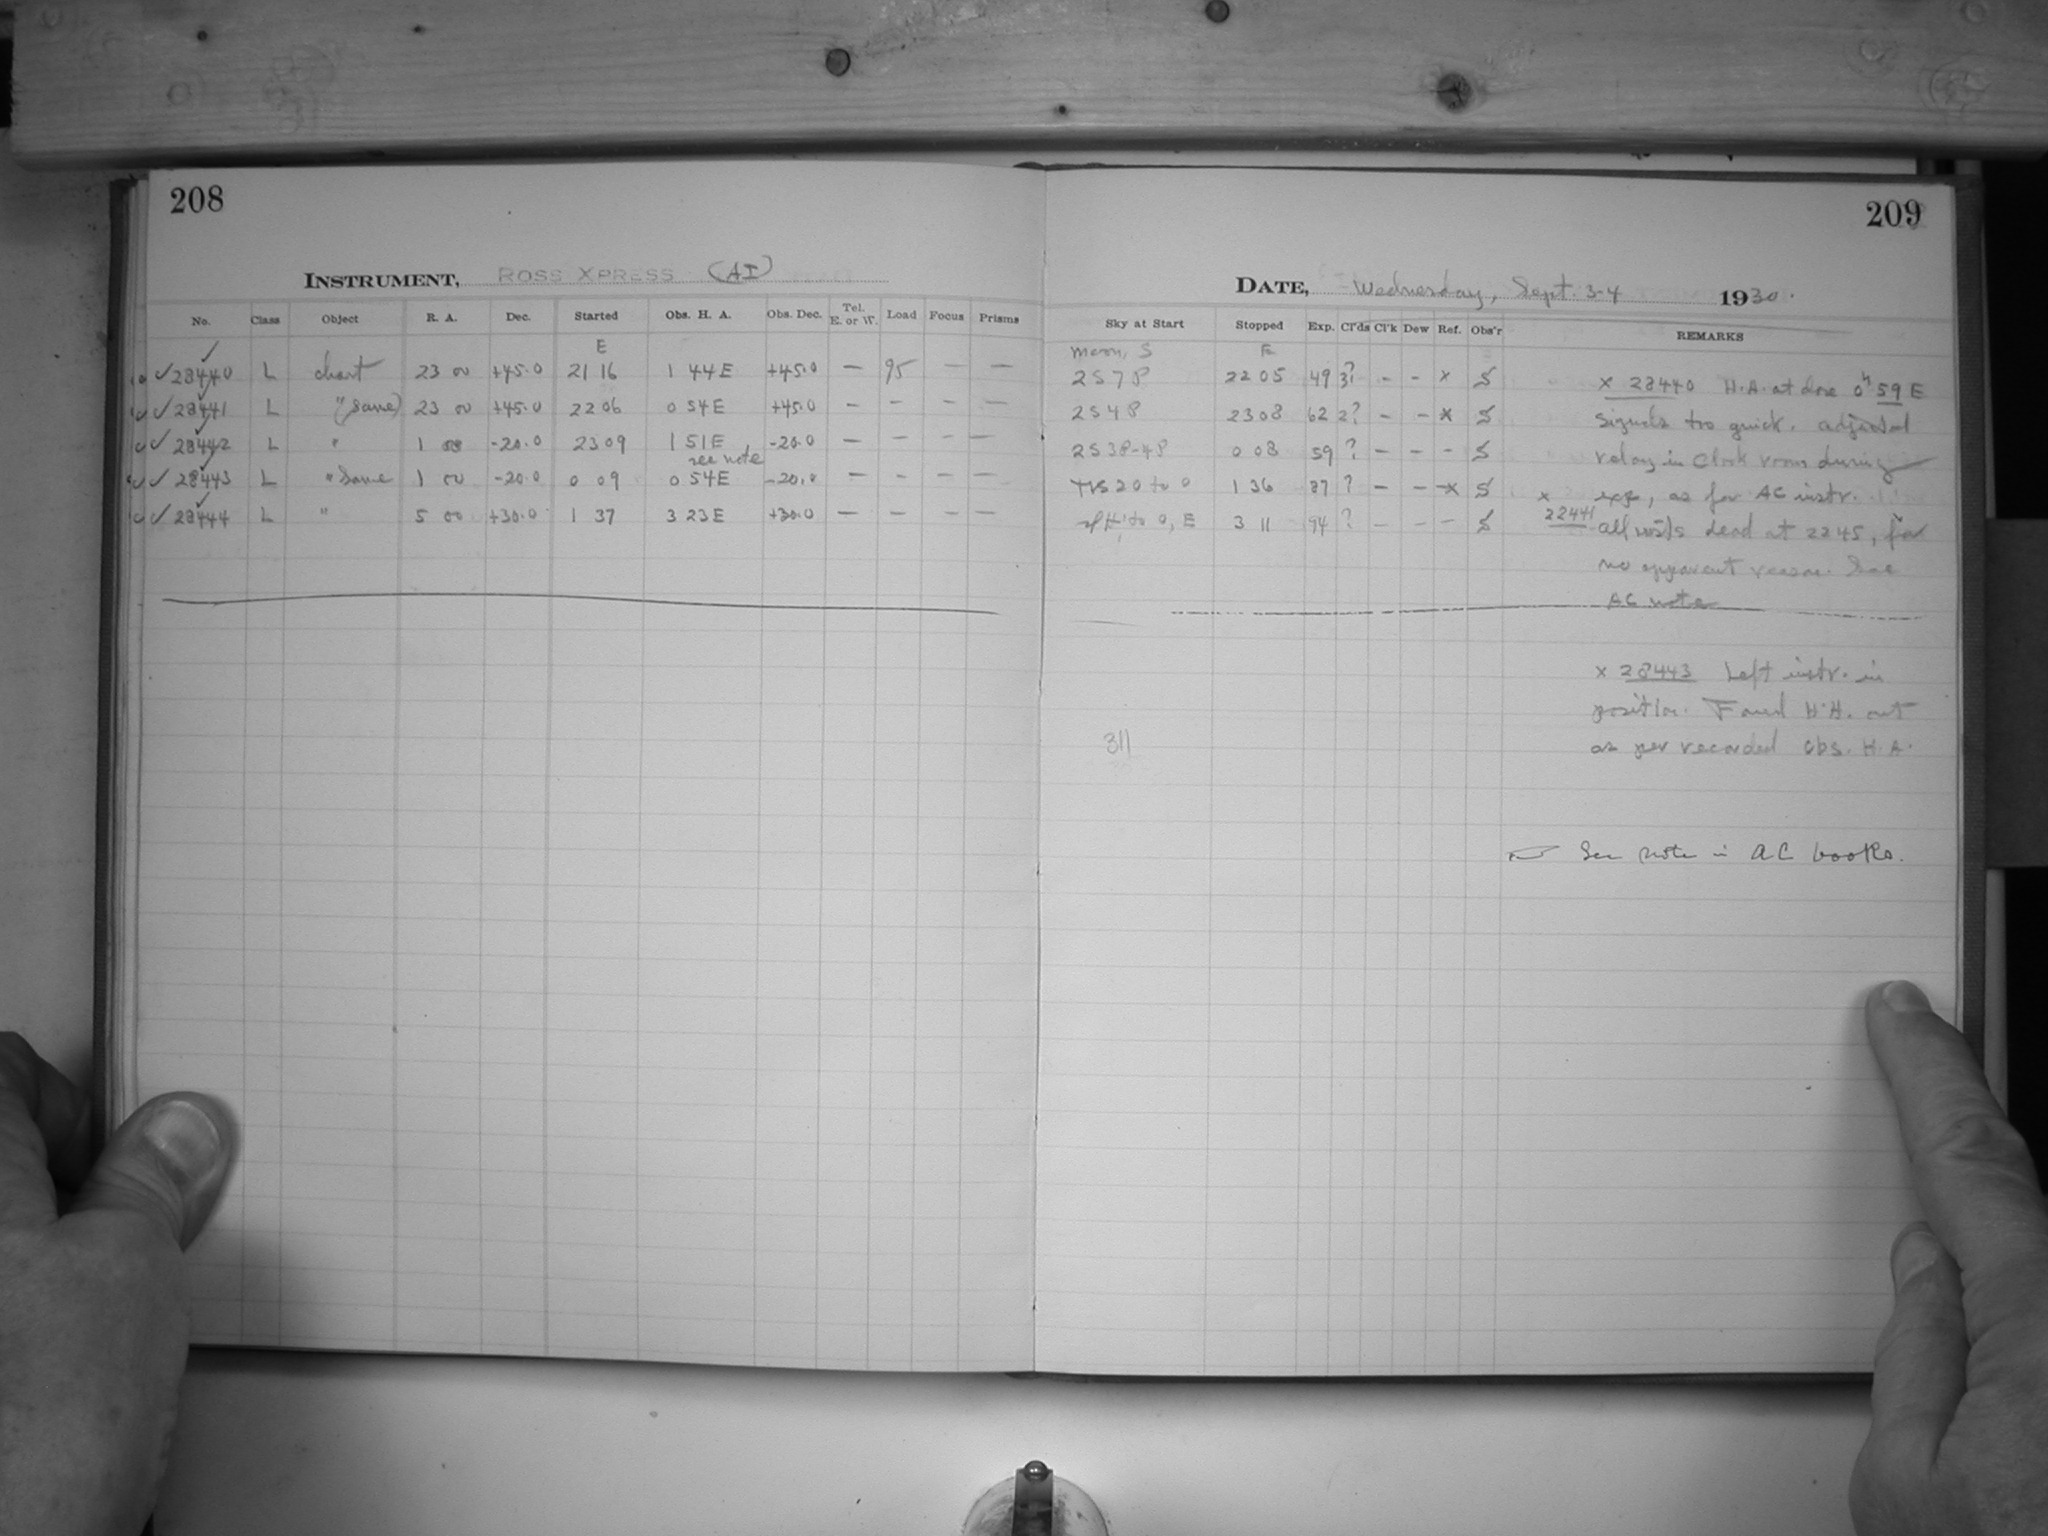 208
INSTRUMENT, ROSS XPRESS (AI)
No. Class Object R. A. Dec. Started Obs. H. A. Obs. Dec. Tel. E. or W. Load Focus Prisms
E
✓ 28440 L chart 23 00 +45.0 21 16 1 44E +45.0 — 95 — —
✓ 28441 L " (Same) 23 00 +45.0 22 06 0 54E +45.0 — — — —
✓ 28442 L " 1 00 -20.0 23 09 1 51E -20.0 — — — —
see note
✓ 28443 L " Same 1 00 -20.0 0 09 0 54E -20.0 — — — —
✓ 28444 L " 5 00 +30.0 1 37 3 23E +30.0 — — — —
209
DATE, Wednesday, Sept. 3-4 1930.
Sky at Start Stopped Exp. Cl'ds Cl'k Dew Ref. Obs'r REMARKS
moon, S E
2S7P 22 05 49 3? - - x S
2S4P 23 08 62 2? - - x S
2S3P-4P 0 08 59 ? - - - S
20 to 0 1 36 87 ? - - -x S
to 0, E 3 11 94 ? - - - S
x 28440 H.A. at done 0h 59 E
signals too quick. adjusted
relay in Clock room during
exp, as for AC instr.
x 22441 all dead at 2245, for
no apparent reason. See
AC note
x 28443 Left instr. in
position. Found H.A. out
as per recorded obs. H.A.
311
See note in AC books.